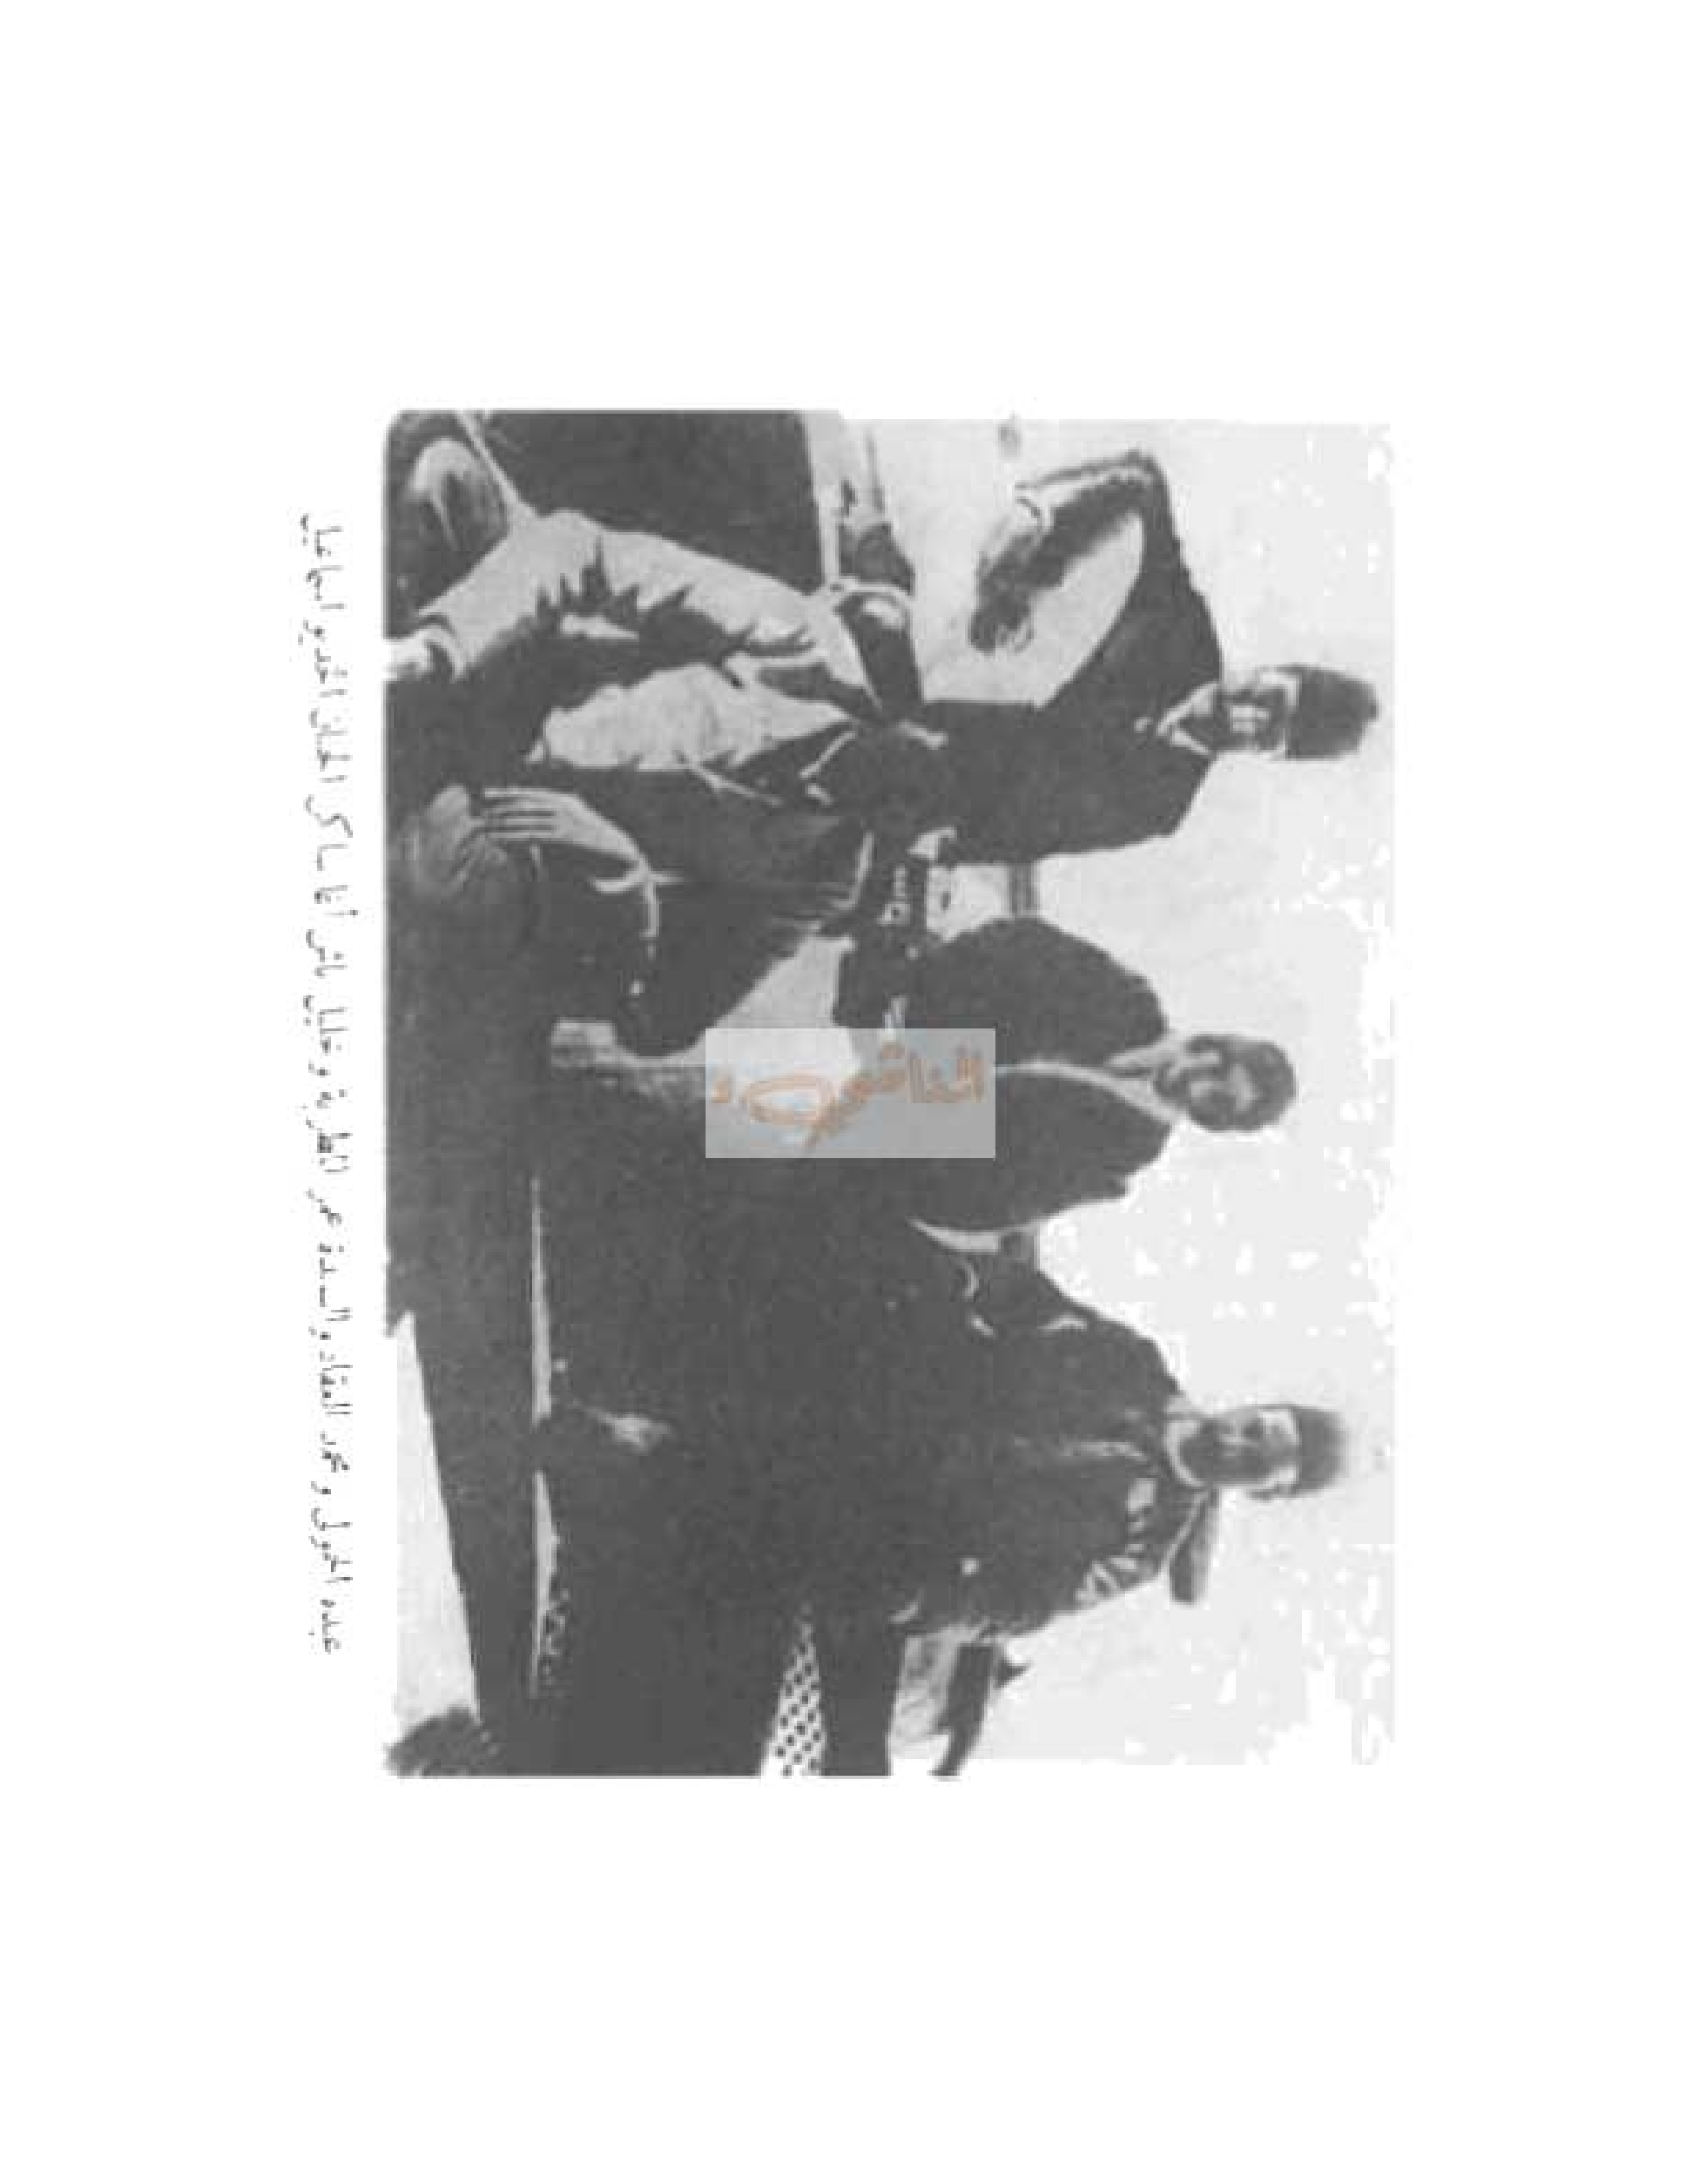 عبده الحمولى ومحمد العقاد والسيدة المطربة وخليل باش أغا الخديو اسماعيل